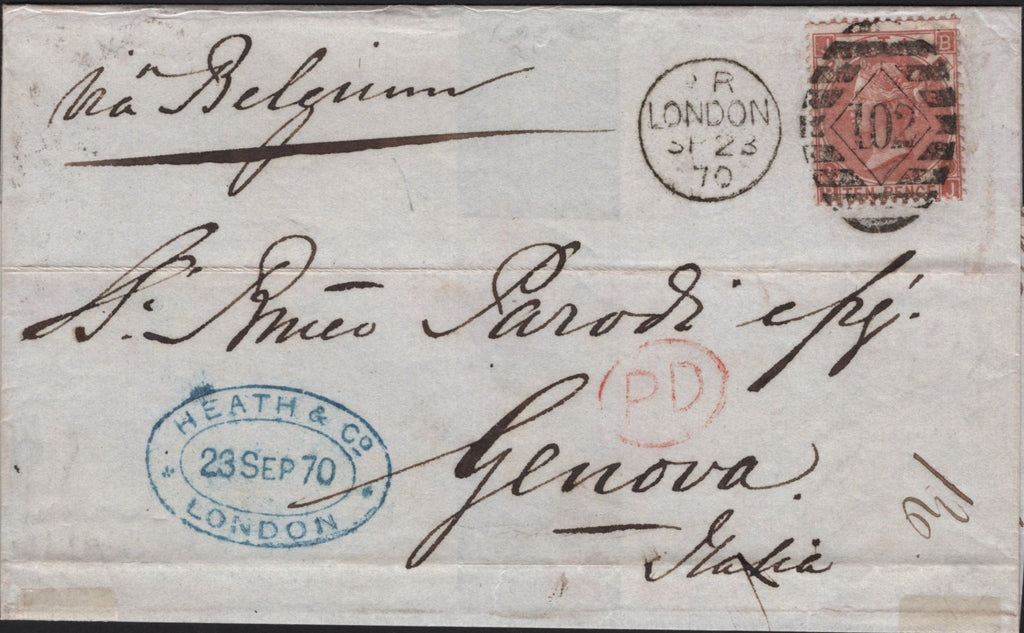 via Belgium
LONDON
SP 23
70
J B
102
TEN PENCE J
Parodi e
PD
Genova.
Italia
HEATH & Co
23 SEP 70
LONDON